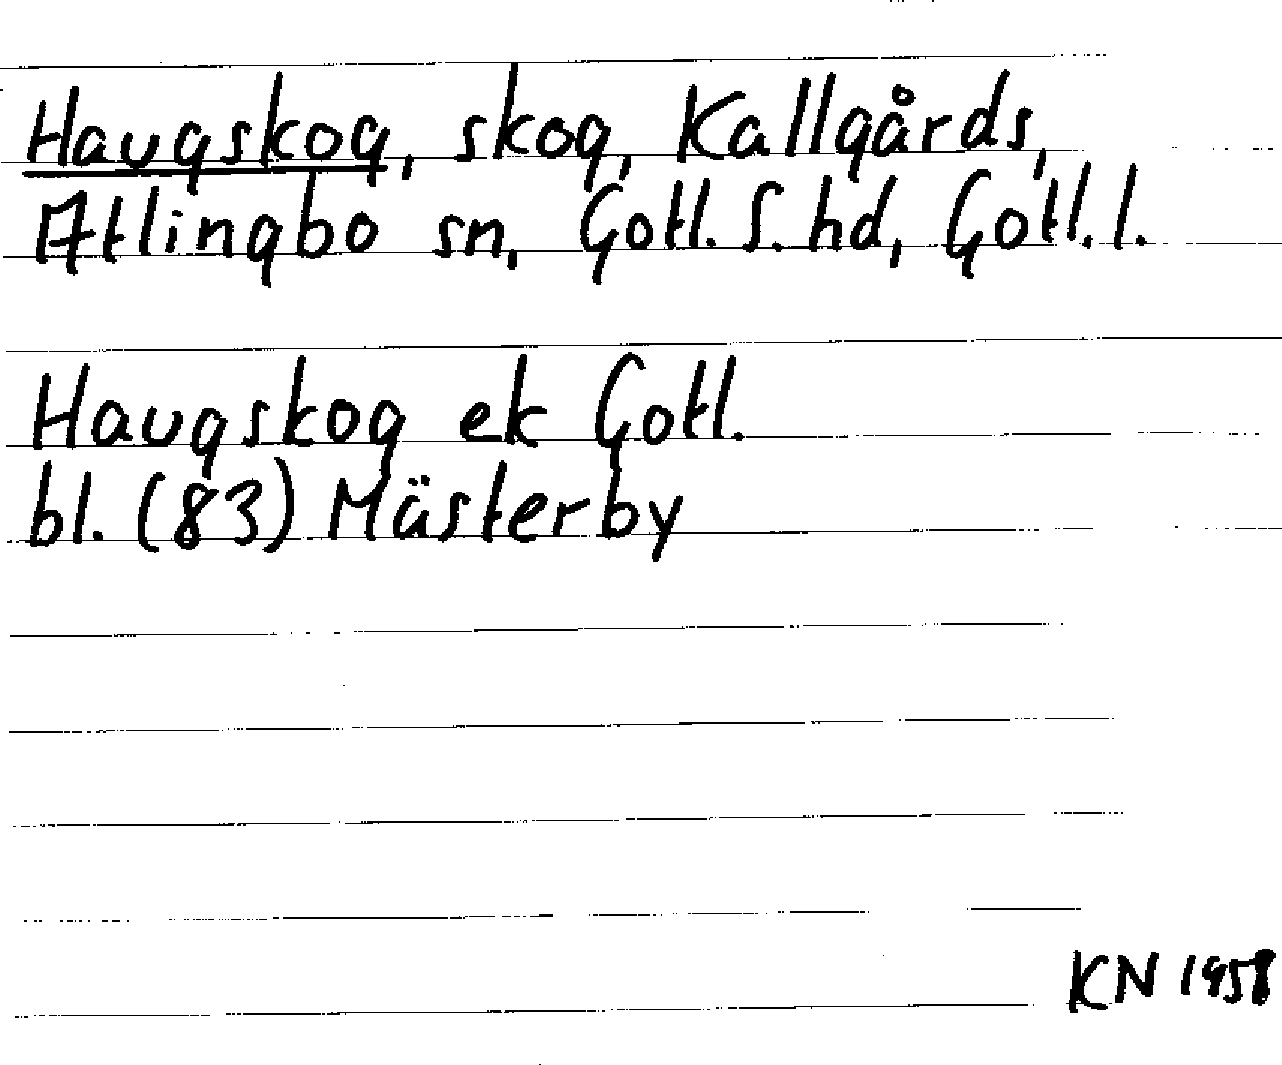 Haugskog, skog, Kallgårds,
Atlingbo sn, Gotl. S. hd, Gotl. l.
Haugskog ek Gotl.
bl. (83) Mästerby
KN 1958